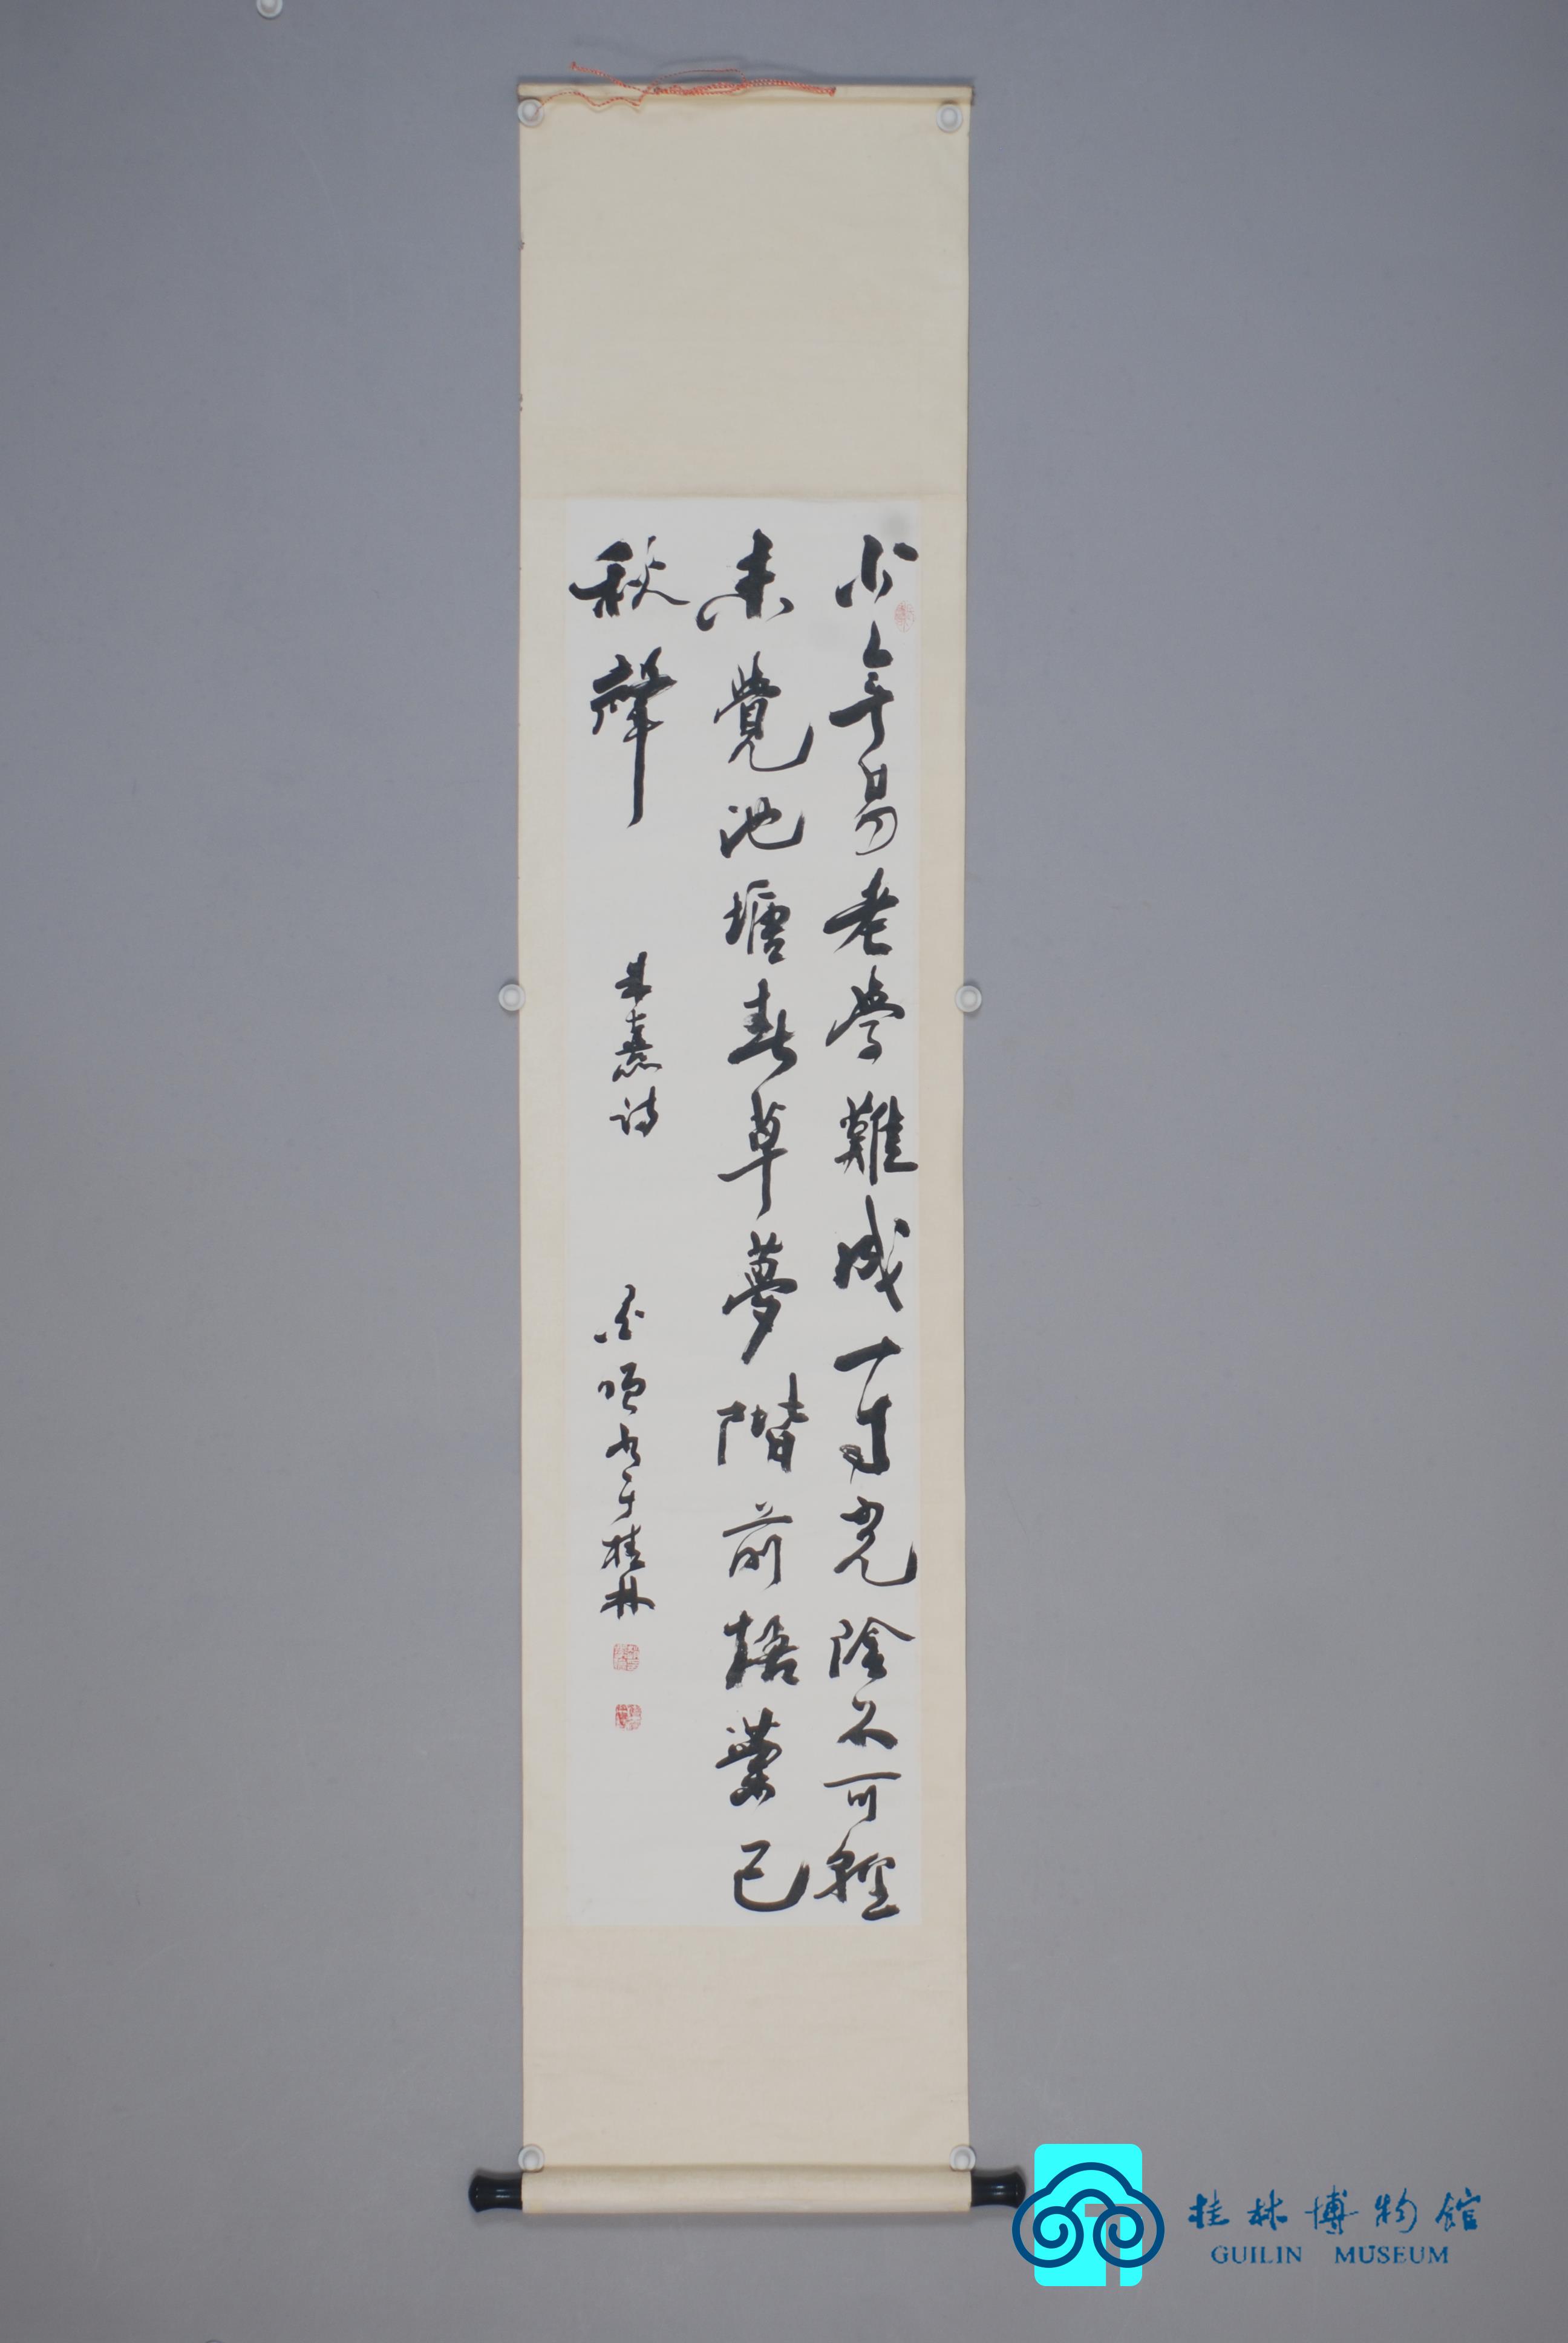 少年易老學難成一寸光陰不可輕
未覺池塘春草夢階前梧葉已
秋聲
朱熹诗
書于桂林
桂林博物館
GUILIN MUSEUM